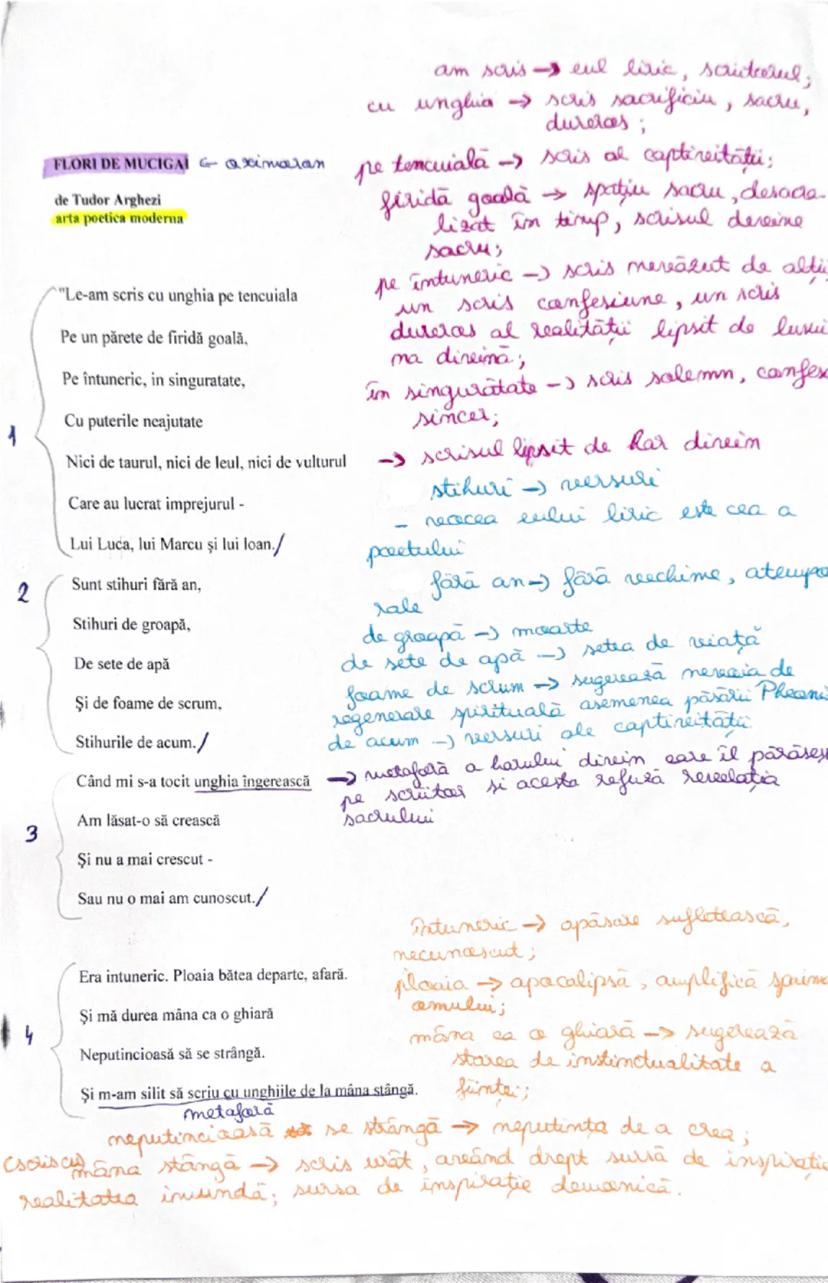 am scris → eul liric, scriitorul;
cu unghia → scris sacrificiu, sacru,
dureros;
FLORI DE MUCIGAI ← oximoron
pe tencuială → scris al captivității;
de Tudor Arghezi
arta poetica moderna
firidă goală → spațiu sacru, desacra-
lizat în timp, scrisul devine
sacru;
pe întuneric → scris nevăzut de alții
un scris confesiune, un scris
dureros al realității lipsit de lumi
na divină;
în singurătate → scris solemn, confes
sincer;
→ scrisul lipsit de har divin
1
"Le-am scris cu unghia pe tencuiala
Pe un părete de firidă goală,
Pe întuneric, in singuratate,
Cu puterile neajutate
Nici de taurul, nici de leul, nici de vulturul
Care au lucrat imprejurul -
Lui Luca, lui Marcu şi lui Ioan./
stihuri → versuri
- vocea eului liric este cea a
poetului
fără an → fără vechime, atempo
rale
de groapă → moarte
de sete de apă → setea de viață
foame de scrum → sugerează nevoia de
regenerare spirituală asemenea păsării Pheoni
de acum → versuri ale captivității
2
Sunt stihuri fără an,
Stihuri de groapă,
De sete de apă
Şi de foame de scrum,
Stihurile de acum./
3
Când mi s-a tocit unghia îngerească
Am lăsat-o să crească
Şi nu a mai crescut -
Sau nu o mai am cunoscut./
→ metaforă a harului divin care îl părăseș
pe scriitor și acesta refuză revelația
sacrului
întuneric → apăsare sufletească,
necunoscut;
ploaia → apocalipsă, amplifică spaima
omului;
mâna ca o ghiară → sugerează
starea de instinctualitate a
ființei;
4
Era intuneric. Ploaia bătea departe, afară.
Şi mă durea mâna ca o ghiară
Neputincioasă să se strângă.
Şi m-am silit să scriu cu unghiile de la mâna stângă.
metaforă
neputincioasă se strângă → neputința de a crea;
(scris cu mâna stângă → scris urât, având drept sursă de inspirație
realitatea imundă; sursa de inspirație demonică.